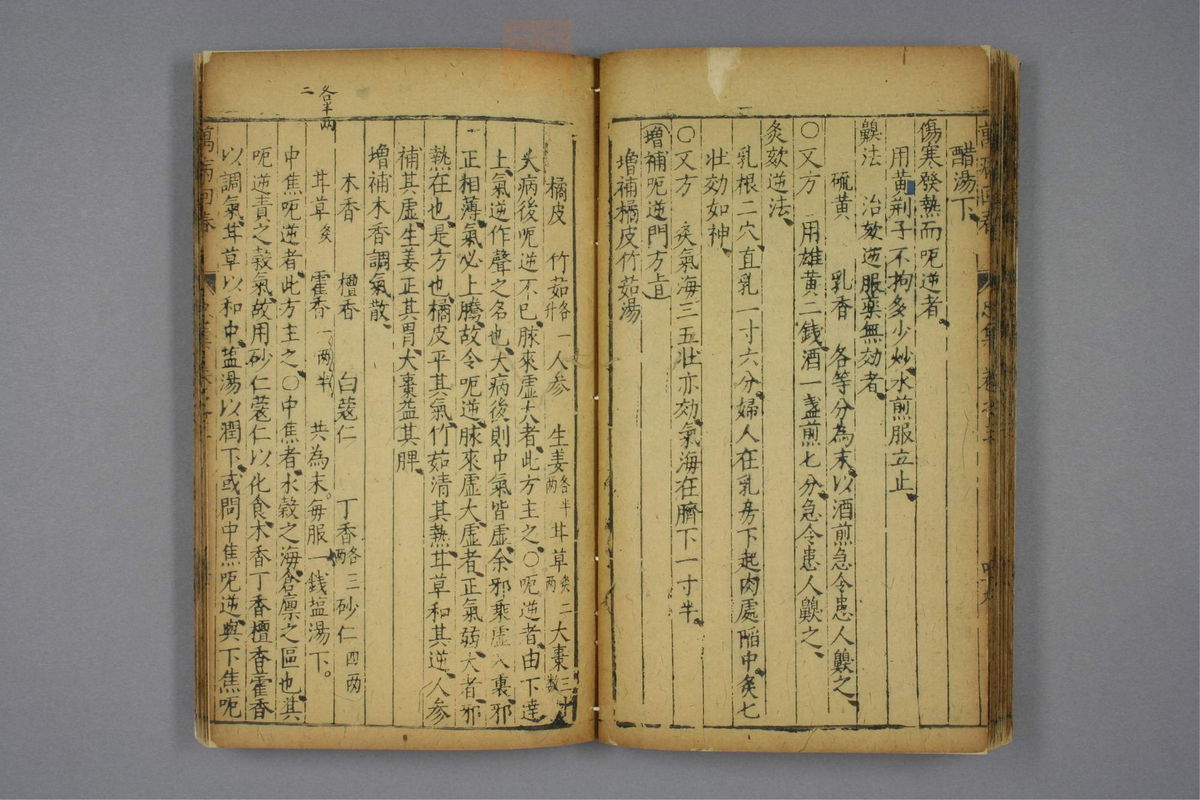 醋湯下
傷寒發熱而呃逆者
用黃荆子不拘多少炒水煎服立止
齅法　治欬逆服藥無効者
硫黃　乳香　各等分為末以酒煎急令患人齅之
〇又方　用雄黃二錢酒一盞煎七分急令患人齅之
灸欬逆法
乳根二穴直乳一寸六分婦人在乳房下起肉處陷中灸七
壯効如神
〇又方　灸氣海三五壯亦効氣海在臍下一寸半
增補呃逆門方㫖
增補橘皮竹茹湯
橘皮　竹茹各一升　人參　生姜各半両　甘草灸二両　大棗三十数
大病後呃逆不已脉來虛大者此方主之〇呃逆者由下達
上氣逆作聲之名也大病後則中氣皆虛余邪乘虛入裏邪
正相薄氣必上騰故令呃逆脉來虛大虛者正氣弱大者邪
熱在也是方也橘皮平其氣竹茹清其熱甘草和其逆人參
補其虛生姜正其胃大棗益其脾
增補木香調氣散
木香　檀香　白蔻仁　丁香各三両　砂仁四両
各半両
二
甘草灸　霍香一両半　共為末每服一錢塩湯下
中焦呃逆者此方主之〇中焦者水穀之海倉廩之區也其
呃逆責之穀氣故用砂仁蔻仁以化食木香丁香檀香霍香
以調氣甘草以和中盐湯以潤下或問中焦呃逆與下焦呃
萬病回春